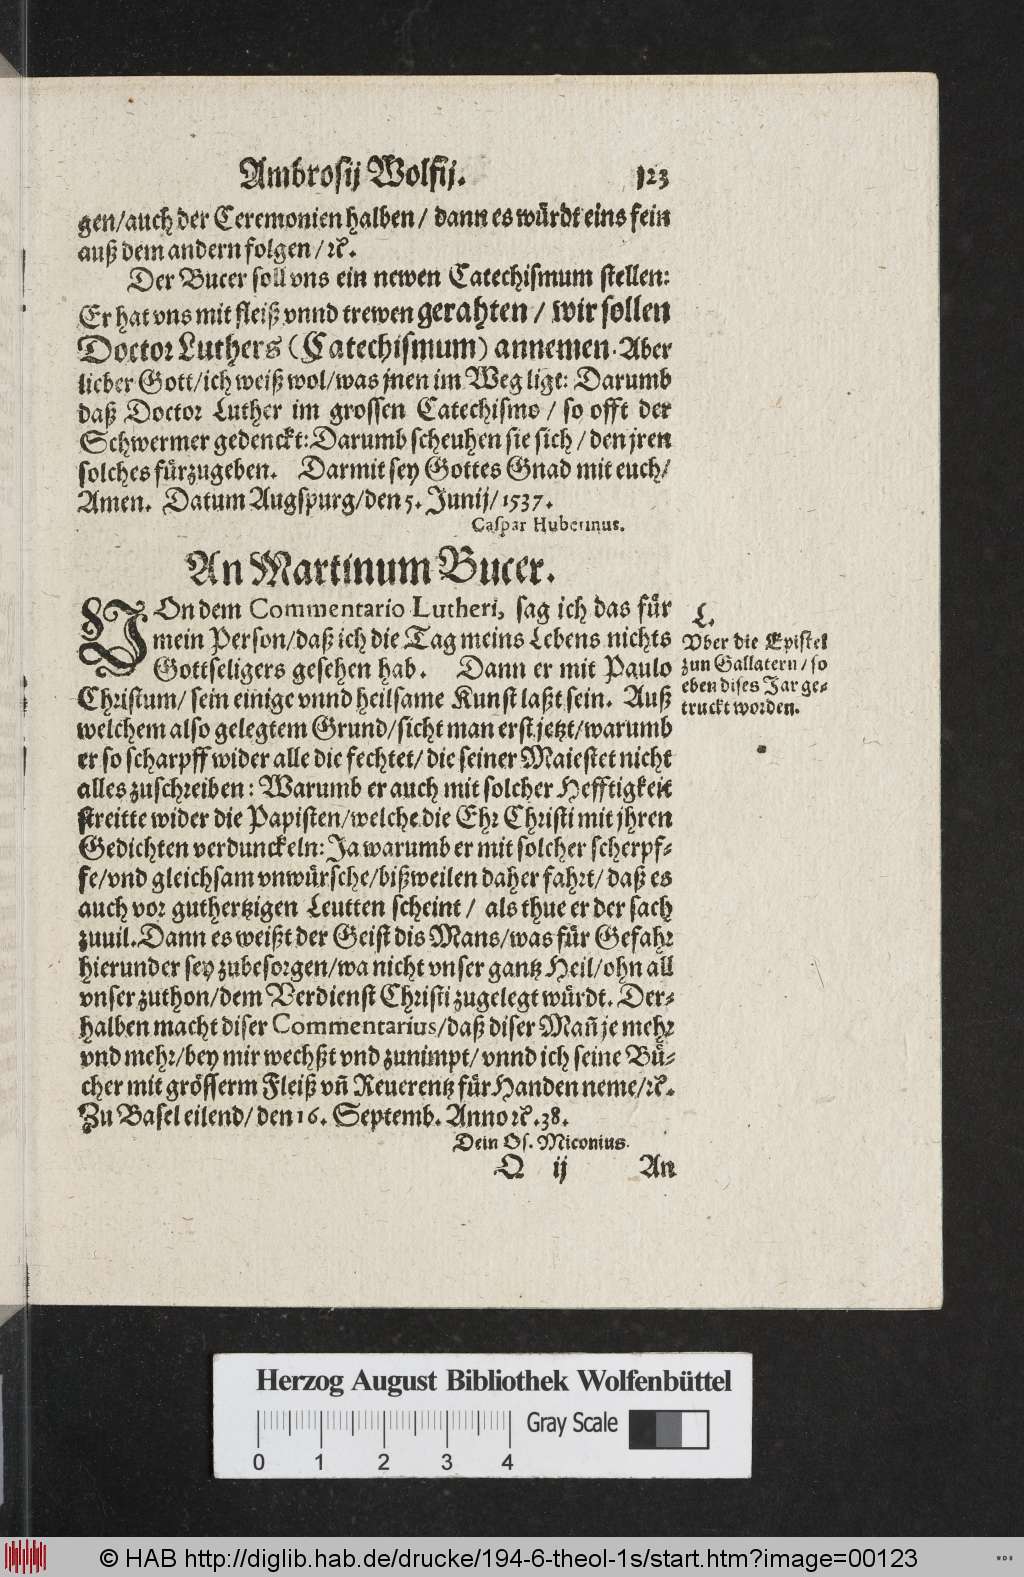 Ambrosij Wolfij. 123
gen/auch der Ceremonien halben/ dann es würdt eins fein
auß dem andern folgen/ꝛc.
Der Bucer soll vns ein newen Catechismum stellen:
Er hat vns mit fleiß vnnd trewen gerahten/ wir sollen
Doctor Luthers (Catechismum) annemen. Aber
lieber Gott/ich weiß wol/was jnen im Weg lige: Darumb
daß Doctor Luther im grossen Catechismo/ so offt der
Schwermer gedenckt: Darumb scheuhen sie sich/ den jren
solches fürzugeben. Darmit sey Gottes Gnad mit euch/
Amen. Datum Augspurg/den 5. Junij/ 1537.
Caspar Huberinus.
An Martinum Bucer.
VOn dem Commentario Lutheri, sag ich das für
mein Person/daß ich die Tag meins Lebens nichts
Gottseligers gesehen hab. Dann er mit Paulo
Christum/ sein einige vnnd heilsame Kunst laßt sein. Auß
welchem also gelegtem Grund/sicht man erst jetzt/warumb
er so scharpff wider alle die fechtet/ die seiner Maiestet nicht
alles zuschreiben: Warumb er auch mit solcher Hefftigkeit
streitte wider die Papisten/welche die Ehr Christi mit jhren
Gedichten verdunckeln: Ja warumb er mit solcher scherpf-
fe/vnd gleichsam vnwürsche/bißweilen daher fahrt/ daß es
auch vor guthertzigen Leutten scheint/ als thue er der sach
zuuil. Dann es weißt der Geist dis Mans/was für Gefahr
hierunder sey zubesorgen/wa nicht vnser gantz Heil/ohn all
vnser zuthon/dem Verdienst Christi zugelegt würdt. Der-
halben macht diser Commentarius/daß diser Mañ je mehr
vnd mehr/bey mir wechßt vnd zunimpt/ vnnd ich seine Bü-
cher mit grösserm Fleiß vñ Reuerentz für Handen neme/ꝛc.
Zu Basel eilend/ den 16. Septemb. Anno ꝛc. 38.
Dein Os. Miconius.
Q ij An
L.
Vber die Epistel
zun Gallatern/ so
eben dises Jar ge-
truckt worden.
Herzog August Bibliothek Wolfenbüttel
Gray Scale
0 1 2 3 4
© HAB http://diglib.hab.de/drucke/194-6-theol-1s/start.htm?image=00123